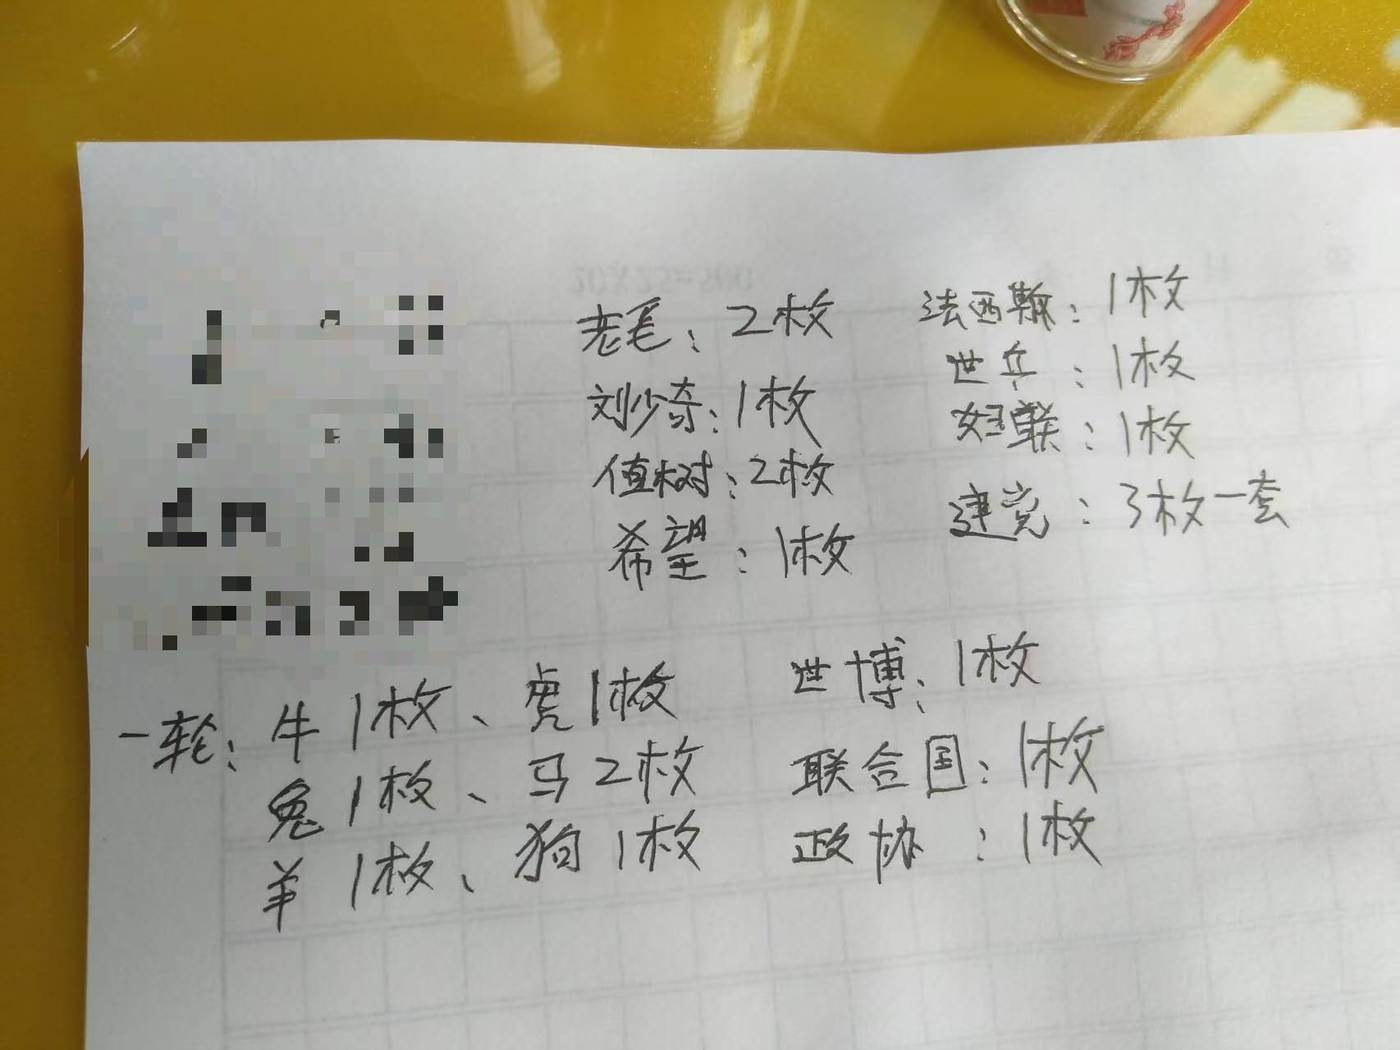 老毛：2枚
刘少奇：1枚
值树：2枚
希望：1枚
法西斯：1枚
世乒：1枚
妇联：1枚
建党：3枚一套
一轮：牛1枚、虎1枚
兔1枚、马2枚
羊1枚、狗1枚
世博：1枚
联合国：1枚
政协：1枚